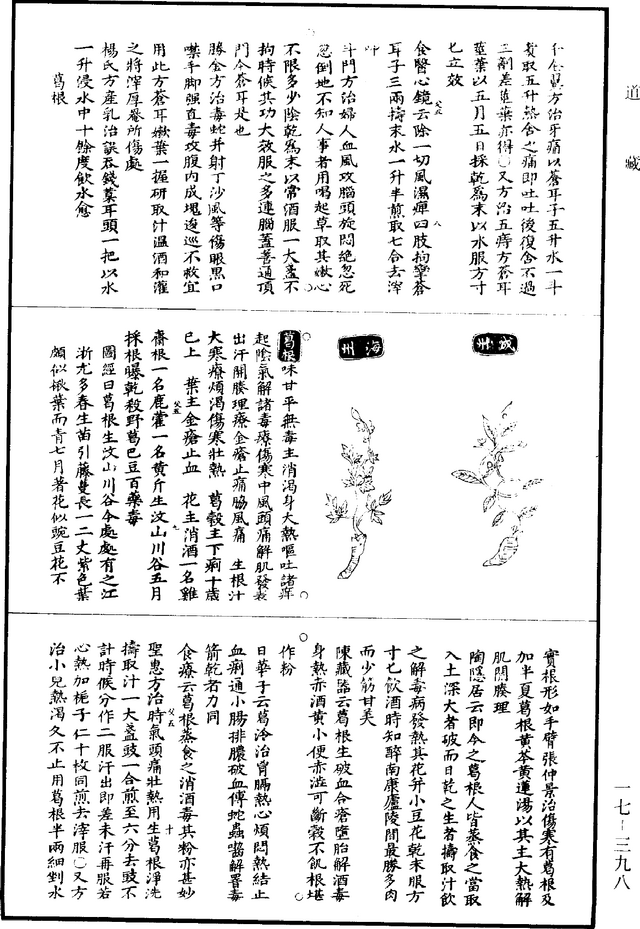 道藏
千金翼方治牙痛以蒼耳子五升水一斗
煑取五升熱含之痛即吐吐後復含不過
三劑差莖葉亦得〇又方治五痔方蒼耳
莖葉以五月五日採乾爲末以水服方寸
匕立效
食醫心鏡云除一切風濕痺四肢拘攣蒼
耳子三兩擣末水一升半煎取七合去滓
呷
斗門方治婦人血風攻腦頭旋悶絶忽死
忽倒地不知人事者用喝起草取其嫩心
不限多少陰乾爲末以常酒服一大盞不
拘時候其功大效服之多連腦蓋善通頂
門今蒼耳是也
勝金方治毒蛇并射工沙虱等傷眼黑口
噤手脚强直毒攻腹内成塊逡巡不救宜
用此方蒼耳嫩葉一握研取汁温酒和灌
之將滓厚罨所傷處
楊氏方産乳治誤吞錢藁耳頭一把以水
一升浸水中十餘度飲水愈
葛根
成州
海州
葛根味甘平無毒主消渴身大熱嘔吐諸痺
起陰氣解諸毒療傷寒中風頭痛解肌發表
出汗開腠理療金瘡止痛脇風痛 生根汁
大寒療煩渴傷寒壯熱 葛榖主下痢十歲
已上 葉主金瘡止血 花主消酒一名雞
齊根一名鹿藿一名黄斤生汶山川谷五月
採根曝乾殺野葛巴豆百藥毒
圖經曰葛根生汶山川谷今處處有之江
浙尤多春生苗引藤蔓長一二丈紫色葉
頗似楸葉而青七月著花似豌豆花不
實根形如手臂張仲景治傷寒有葛根及
加半夏葛根黄芩黄連湯以其主大熱解
肌開腠理
陶隱居云即今之葛根人皆蒸食之當取
入土深大者破而日乾之生者擣取汁飲
之解毒病發熱其花并小豆花乾末服方
寸匕飲酒時知醉南康廬陵間最勝多肉
而少筋甘美
陳藏器云葛根生破血合瘡墮胎解酒毒
身熱赤酒黄小便赤澁可斷穀不飢根堪
作粉
日華子云葛冷治胷膈熱心煩悶熱結止
血痢通小腸排膿破血傅蛇蟲嚙解罯毒
箭乾者力同
食療云葛根蒸食之消酒毒其粉亦甚妙
聖惠方治時氣頭痛壯熱用生葛根淨洗
擣取汁一大盞豉一合煎至六分去豉不
計時候分作二服汗出即差未汗再服若
心熱加梔子仁十枚同煎去滓服〇又方
治小兒熱渴久不止用葛根半兩細剉水
一七-三九八